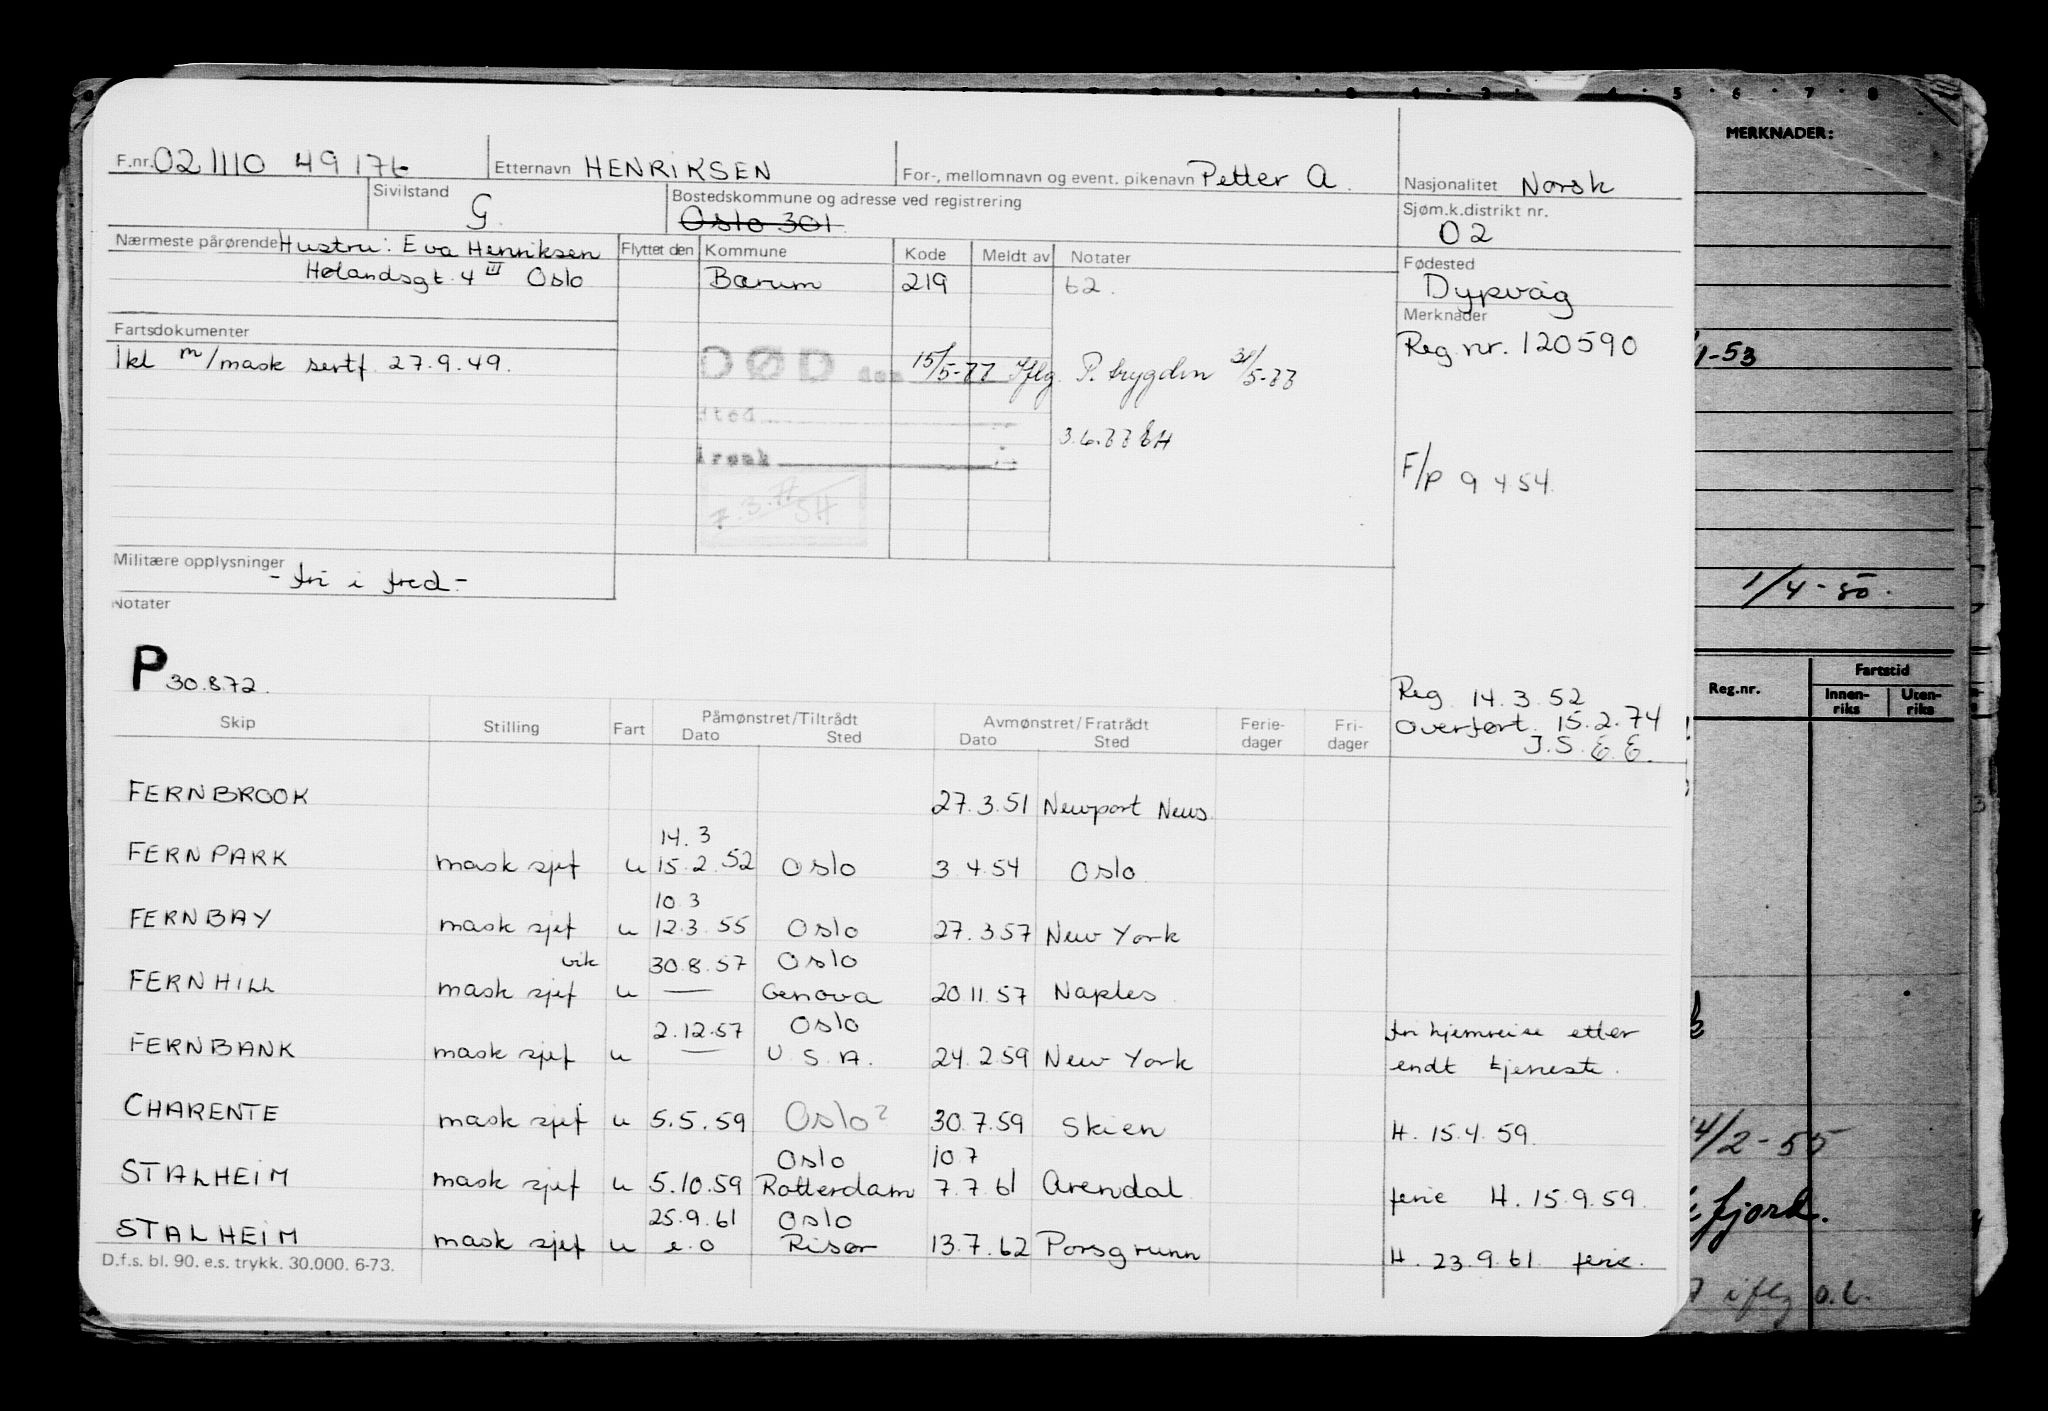 F.nr. 021110 49176 Etternavn HENRIKSEN For-, mellomnavn og event. pikenavn Petter A. Nasjonalitet Norsk
Sivilstand G. Bostedskommune og adresse ved registrering Oslo 301 Sjøm.k.distrikt nr. 02
Nærmeste pårørende Hustru: Eva Henriksen Flyttet den Kommune Kode Meldt av Notater Fødested
Hølandsgt. 4 III Oslo Bærum 219 62. Dypvåg
Fartsdokumenter Merknader
1kl m/mask sertf 27.9.49. Reg nr. 120590
DØD den 15/5-77 Iflg. P. trygden 31/5-77
Sted
Årsak 3.6.77
F/P 9454
Militære opplysninger - fri i fred -
Notater
P 30.8.72.
Reg 14.3.52
Overført. 15.2.74
J.S. E.E.
Skip Stilling Fart Påmønstret/Tiltrådt Avmønstret/Fratrådt Ferie- Fri-
Dato Sted Dato Sted dager dager
FERNBROOK 27.3.51 Newport News
14.3
FERNPARK mask sjef u 15.2.52 Oslo 3.4.54 Oslo
10.3
FERNBAY mask sjef u 12.3.55 Oslo 27.3.57 New York
vik 30.8.57 Oslo
FERNHILL mask sjef u — Genova 20.11.57 Naples
2.12.57 Oslo fri hjemreise etter
FERNBANK mask sjef u — U.S.A. 24.2.59 New York endt tjeneste.
CHARENTE mask sjef u 5.5.59 Oslo? 30.7.59 Skien H. 15.4.59.
Oslo 10.7
STALHEIM mask sjef u 5.10.59 Rotterdam 7.7.61 Arendal ferie H. 15.9.59.
25.9.61 Oslo
STALHEIM mask sjef u e.o Risør 13.7.62 Porsgrunn H. 23.9.61 ferie.
D.f.s. bl. 90. e.s. trykk. 30.000. 6-73.
5 6 7 8
MERKNADER:
1-53
1/4-50.
Reg.nr. Fartstid
Innen-riks Uten-riks
4/2-55
fjord.
iflg o.l.